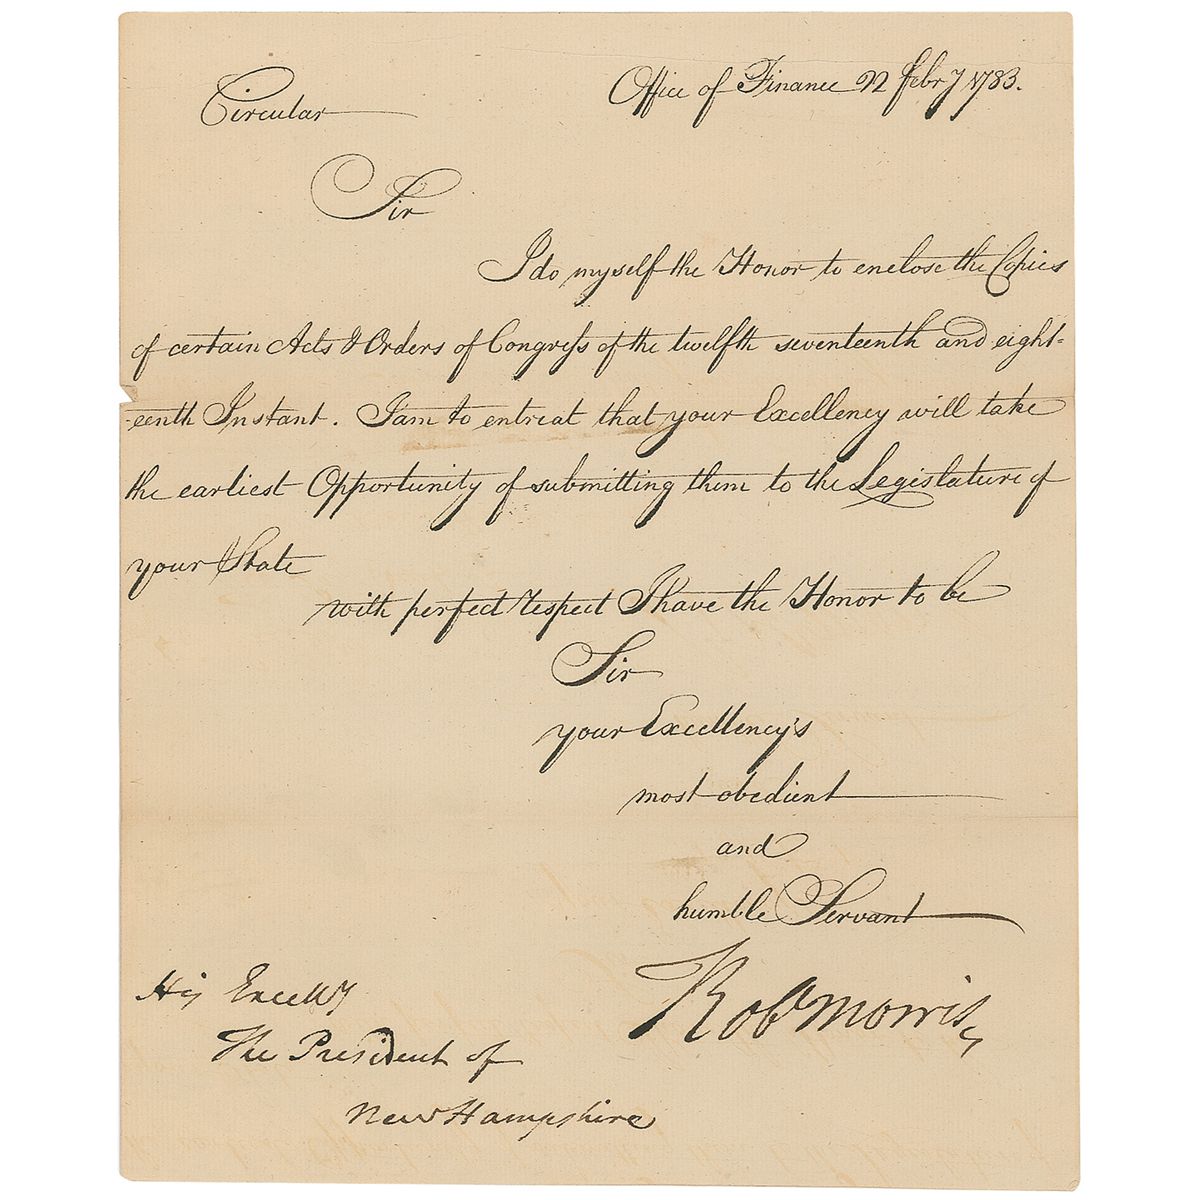 Office of Finance 22 Febry 1783.
Circular
Sir
I do myself the Honor to enclose the Copies
of certain Acts & Orders of Congress of the twelfth seventeenth and eigh-
teenth Instant. I am to entreat that your Excellency will take
the earliest Opportunity of submitting them to the Legislature of
your State
with perfect respect I have the Honor to be
Sir
your Excellency's
most obedient
and
humble Servant
Robt Morris
His Excelly
The President of
New Hampshire